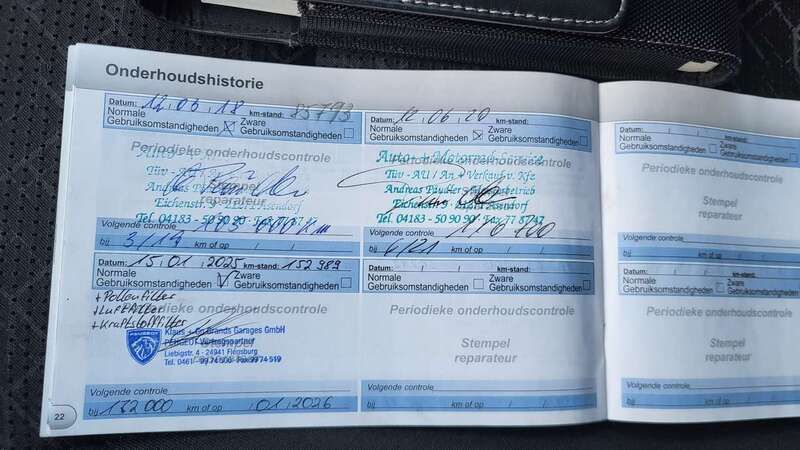 Onderhoudshistorie
Datum: 12.03.18 km-stand: 85793
Normale Gebruiksomstandigheden Zware Gebruiksomstandigheden
Periodieke onderhoudscontrole
Stempel
reparateur
Tüv - AU / An + Verkauf v. Kfz
Andreas
Eichenstr. 9 - 21271 Asendorf
Tel. 04183 - 50 90 90 - Fax 77 87 47
Volgende controle 105 000 Km
bij 3/19 km of op
Datum: 12.06.20 km-stand:
Normale Gebruiksomstandigheden Zware Gebruiksomstandigheden
Periodieke onderhoudscontrole
Auto + Motorrad
Tüv - AU / An + Verkauf v. Kfz
Andreas
Eichenstr. 9 - 21271 Asendorf
Tel. 04183 - 50 90 90 - Fax 77 87 47
Volgende controle
bij 6/21 km of op
Datum: 15.01.2025 km-stand: 152989
Normale Gebruiksomstandigheden Zware Gebruiksomstandigheden
+Pollenfilter
+Luftfilter
+Kraftstofffilter
Periodieke onderhoudscontrole
PEUGEOT
Klaus + Co Brands Garages GmbH
PEUGEOT Vertragspartner
Liebigstr. 4 - 24941 Flensburg
Volgende controle
bij 182000 km of op 01.2026
Datum: / / km-stand:
Normale Gebruiksomstandigheden Zware Gebruiksomstandigheden
Periodieke onderhoudscontrole
Stempel
reparateur
Volgende controle
bij km of op / /
22
Datum: / / km-stand:
Normale
Gebruiksomstandigheden
Periodieke onderhoudscontrole
Stempel
reparateur
Volgende controle
bij km of op
Datum: / / km-stand:
Normale
Gebruiksomstandigheden
Periodieke onderhoudscontrole
Stempel
reparateur
Volgende controle
bij km of op /